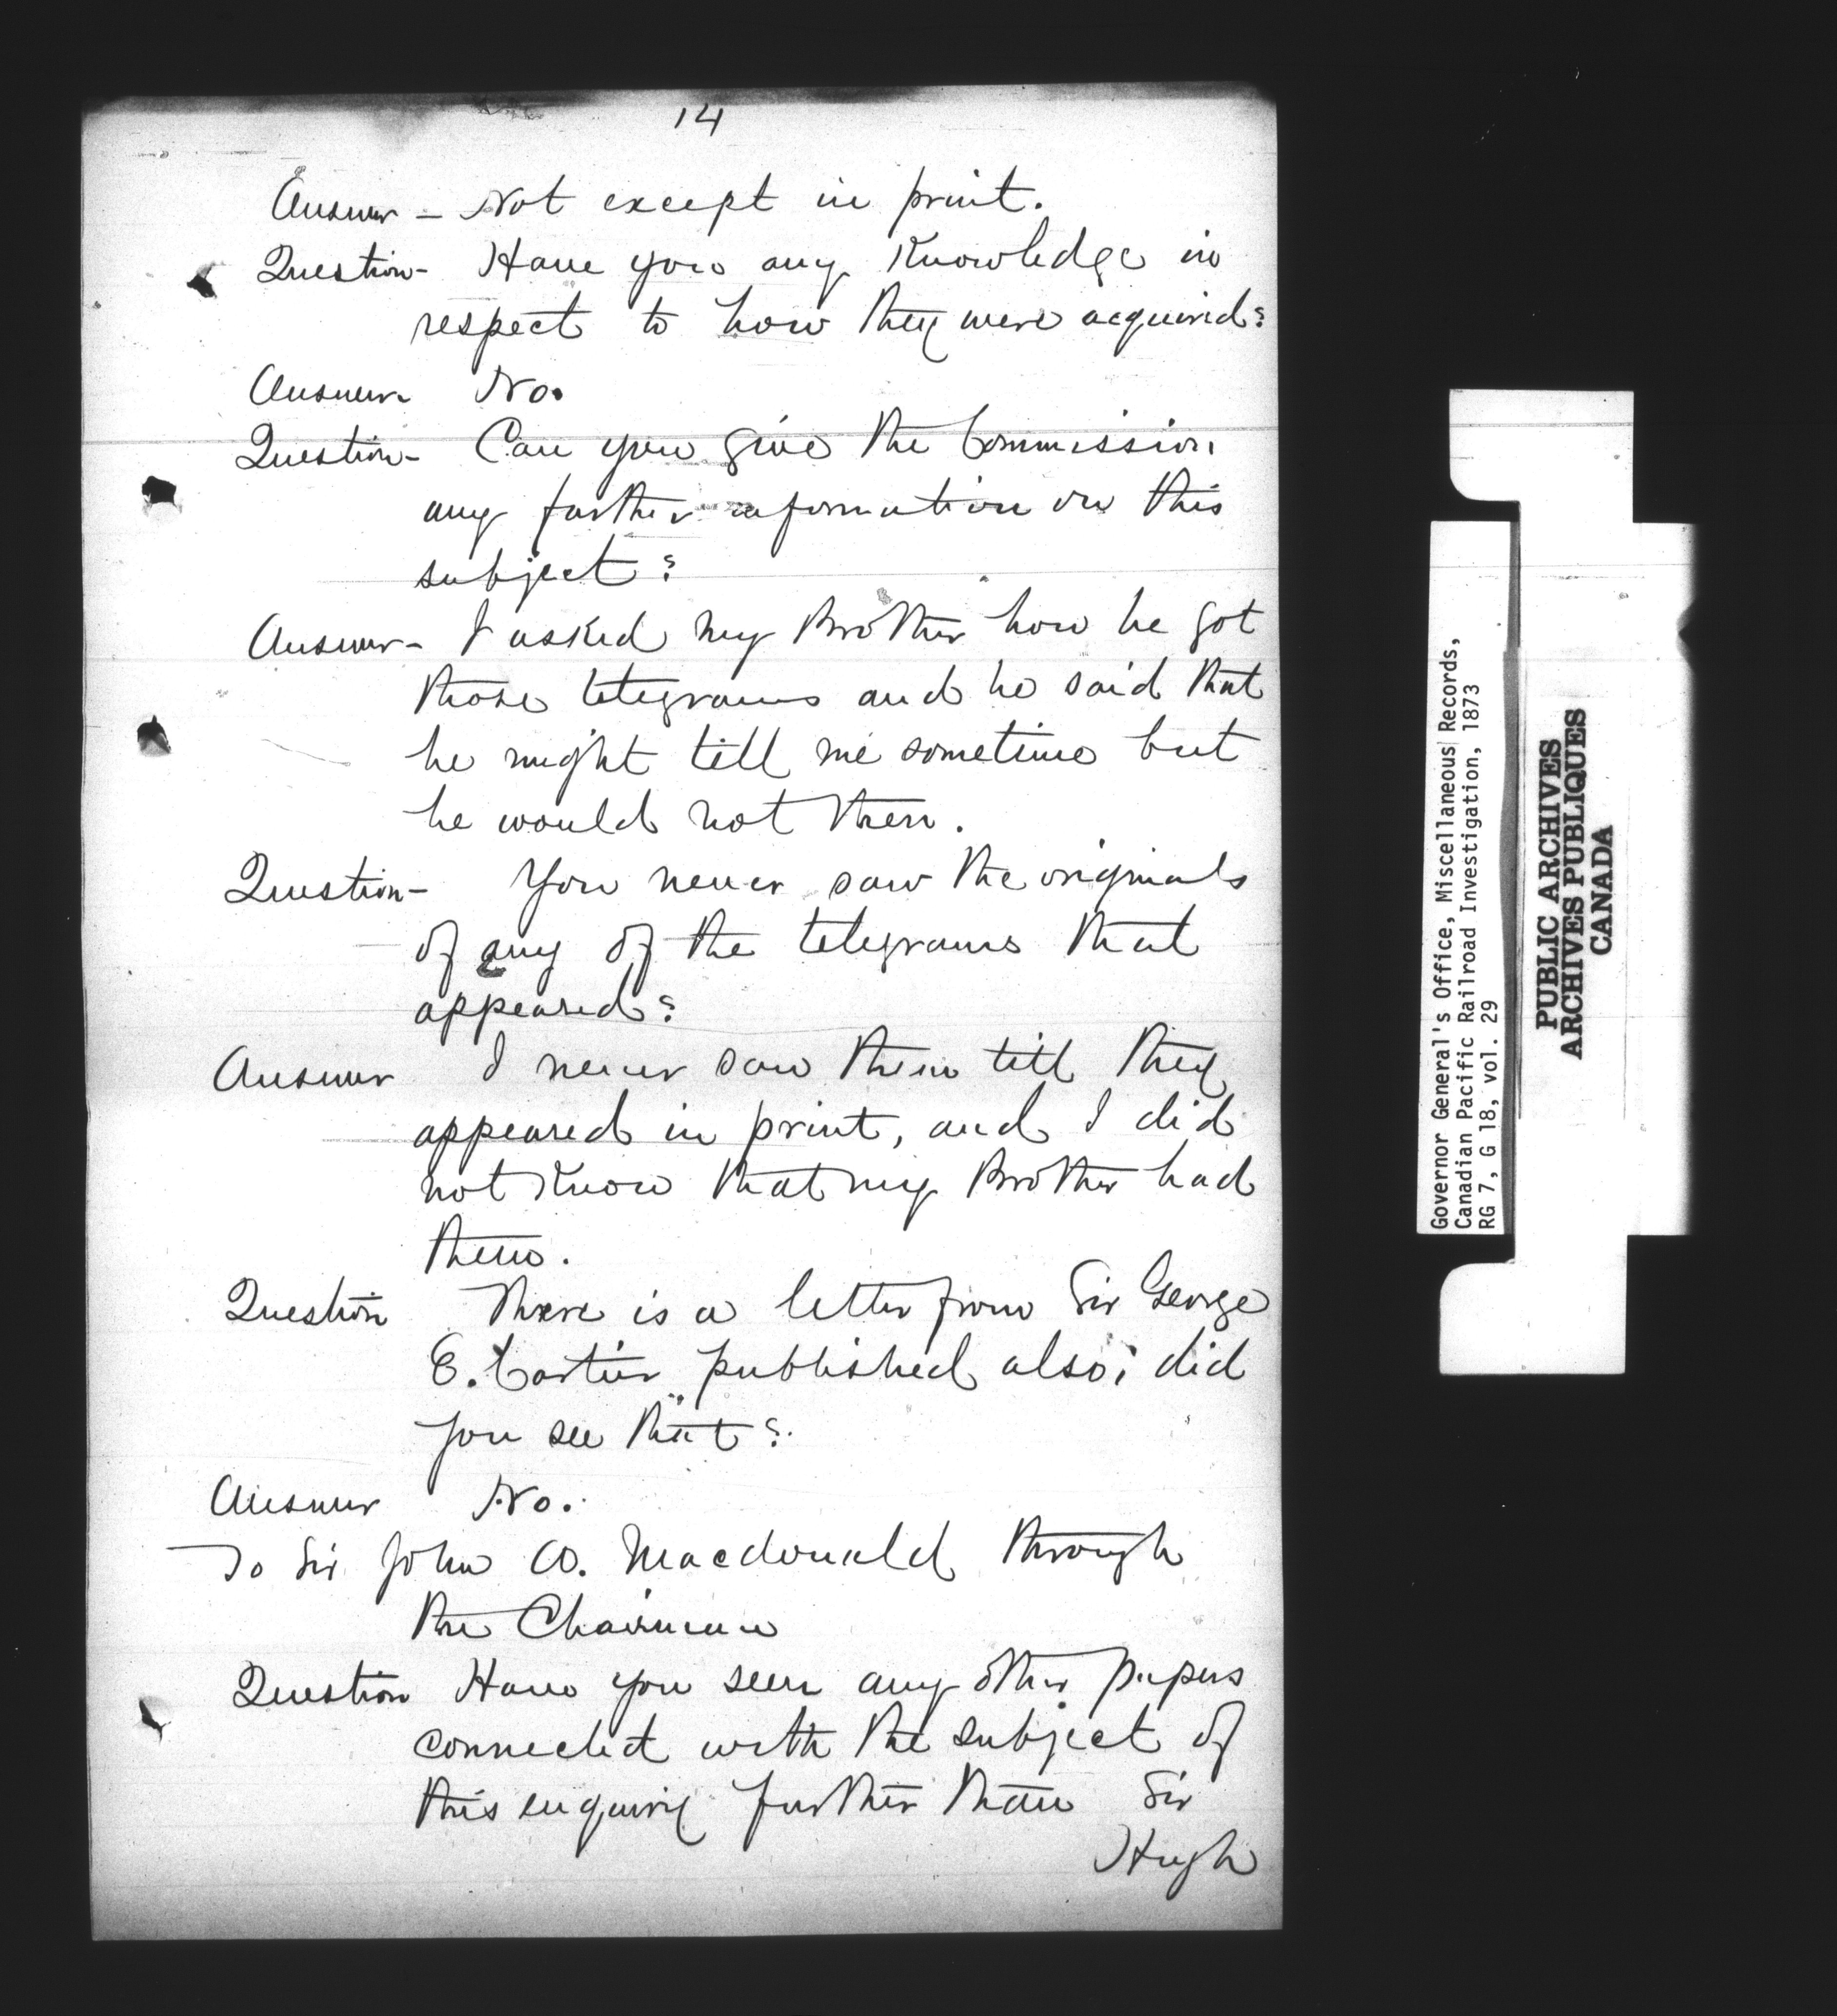 14
Answer - Not except in print.
Question - Have you any Knowledge in
respect to how they were acquired?
Answer - No.
Question - Can you give the Commission
any further information on this
subject?
Answer - I asked my Brother how he got
those telegrams and he said that
he might tell me sometime but
he would not then.
Question - You never saw the originals
of any of the telegrams that
appeared?
Answer I never saw them till they
appeared in print, and I did
not Know that my Brother had
them.
Question There is a letter from Sir George
E. Cartier published also; did
you see that?
Answer No.
To Sir John A. Macdonald through
the Chairman
Question Have you seen any other papers
connected with the subject of
this enquiry further than Sir
Hugh
Governor General's Office, Miscellaneous Records,
Canadian Pacific Railroad Investigation, 1873
RG 7, G 18, vol. 29
PUBLIC ARCHIVES
ARCHIVES PUBLIQUES
CANADA